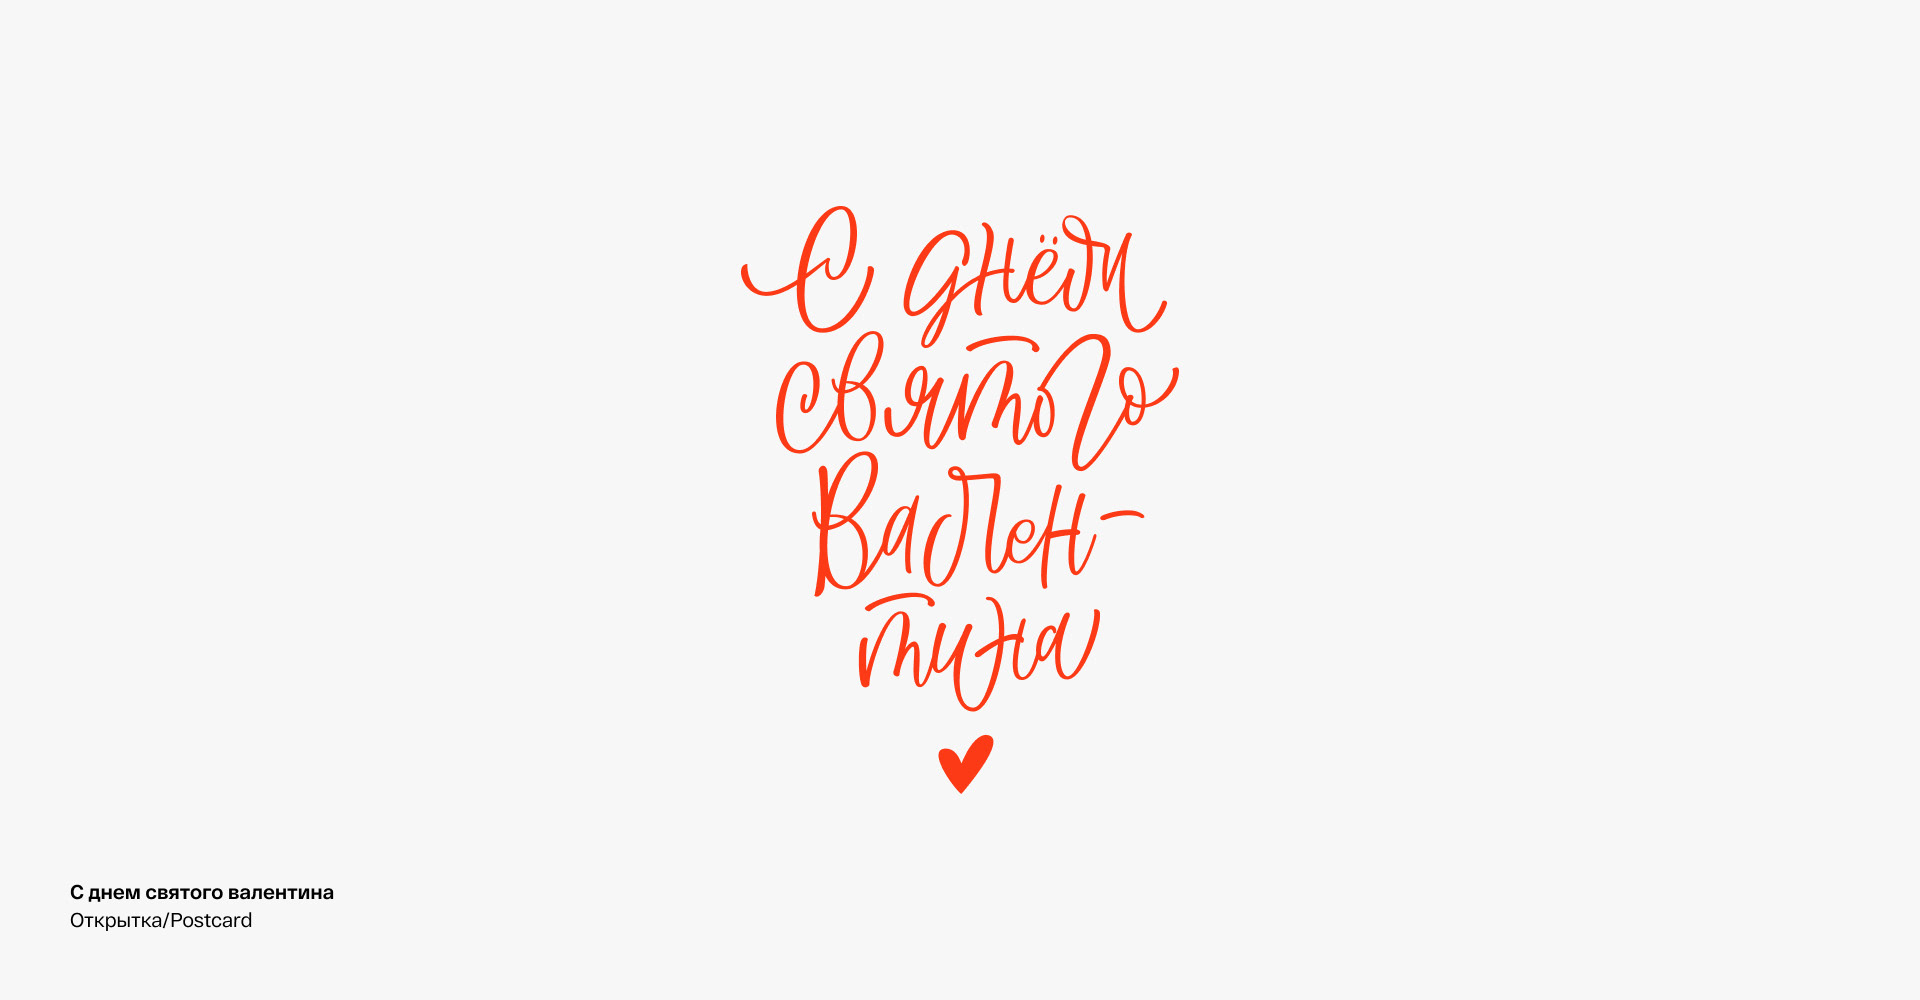 С днём
святого
Вален-
тина
С днем святого валентина
Открытка/Postcard